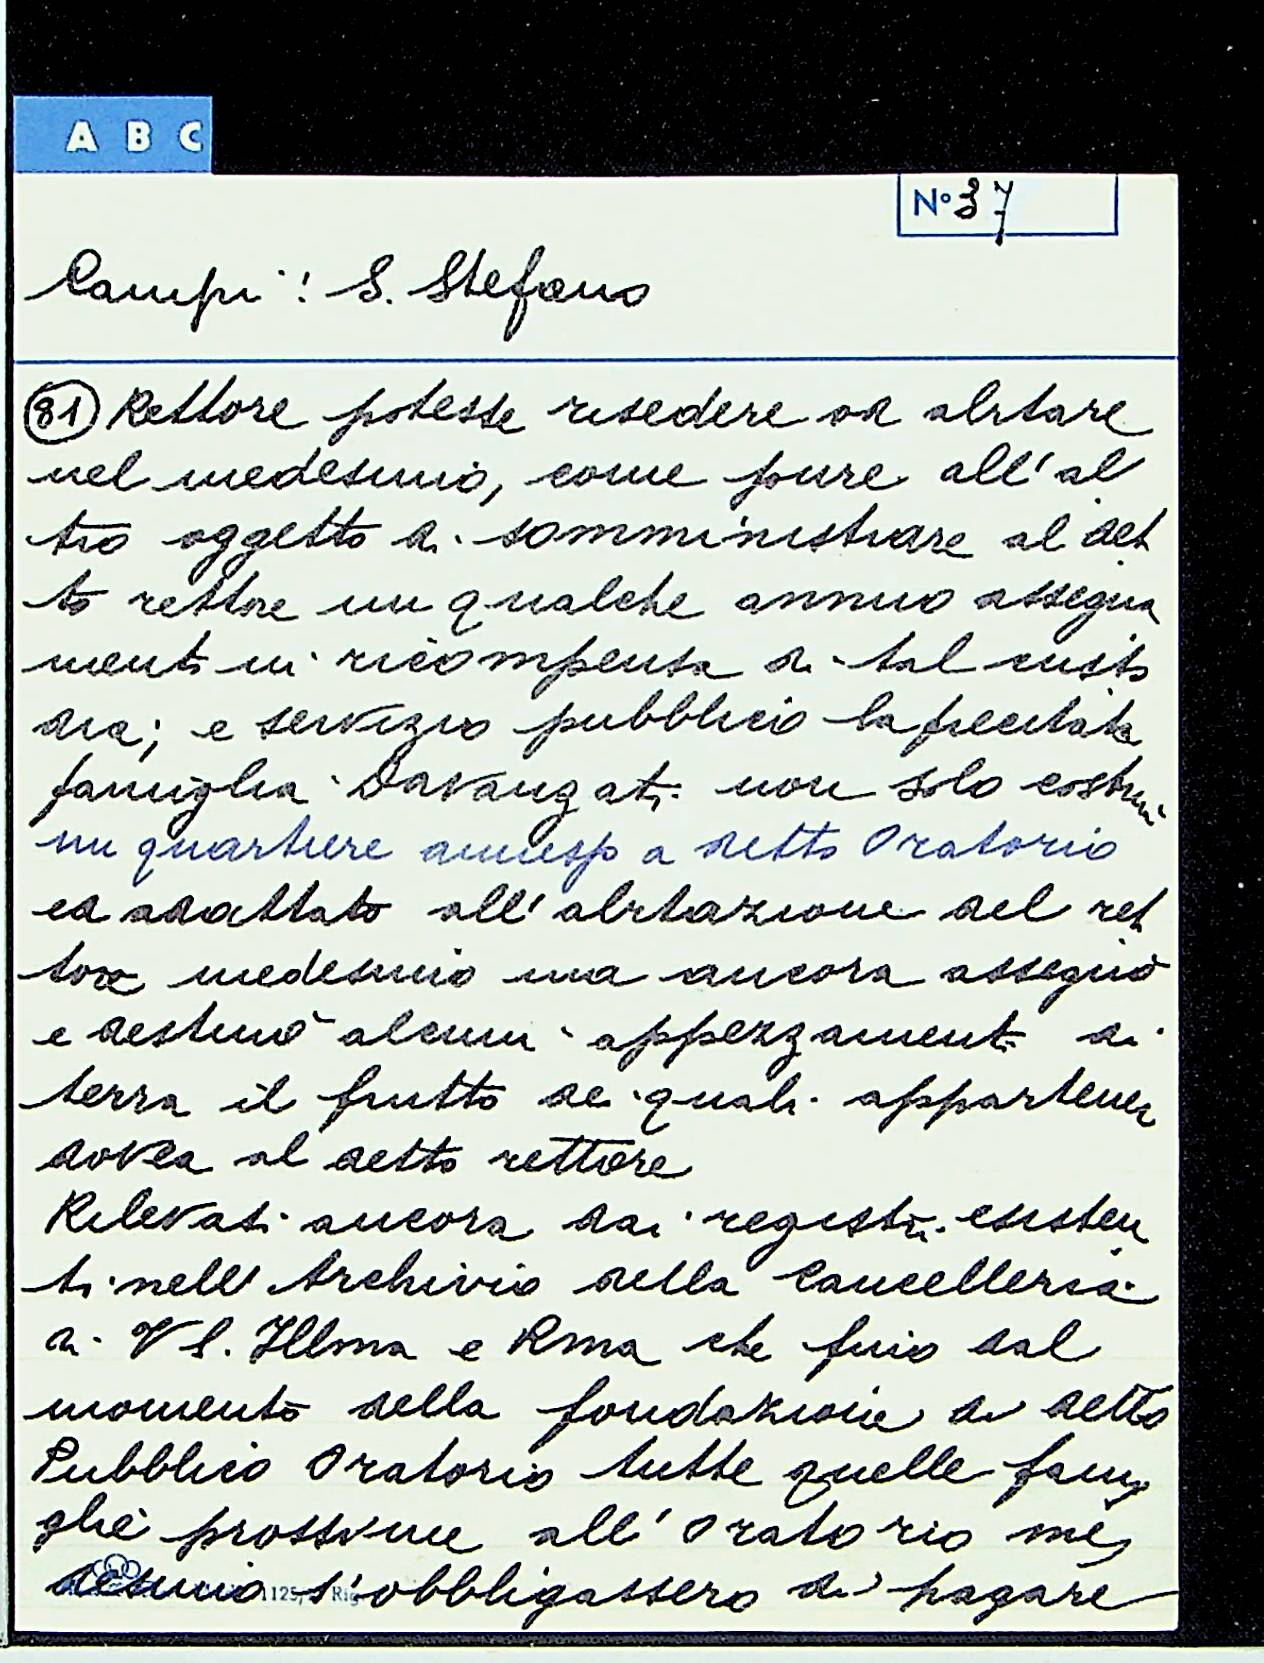 A B C
N° 37
Campi: S. Stefano
81 Rettore potesse risedere od abitare
nel medesimo, come pure all'al
tro oggetto di somministrare al det
to rettore un qualche annuo assegna
mento in ricompensa di tal custo
dia; e servizio pubblico la precitata
famiglia Davanzati non solo costruì
un quartiere annesso a detto Oratorio
ed adattato all'abitazione del ret
tore medesimo ma ancora assegnò
e destinò alcuni appezzamenti di
terra il frutto de quali appartener
dovea al detto rettore
Rilevasi ancora dai registri esisten
ti nell'Archivio della Cancelleria
di VS. Illma e Rma che fino dal
momento della fondazione di detto
Pubblico Oratorio tutte quelle fami
glie prossime all'Oratorio me
desimo s'obbligassero di pagare